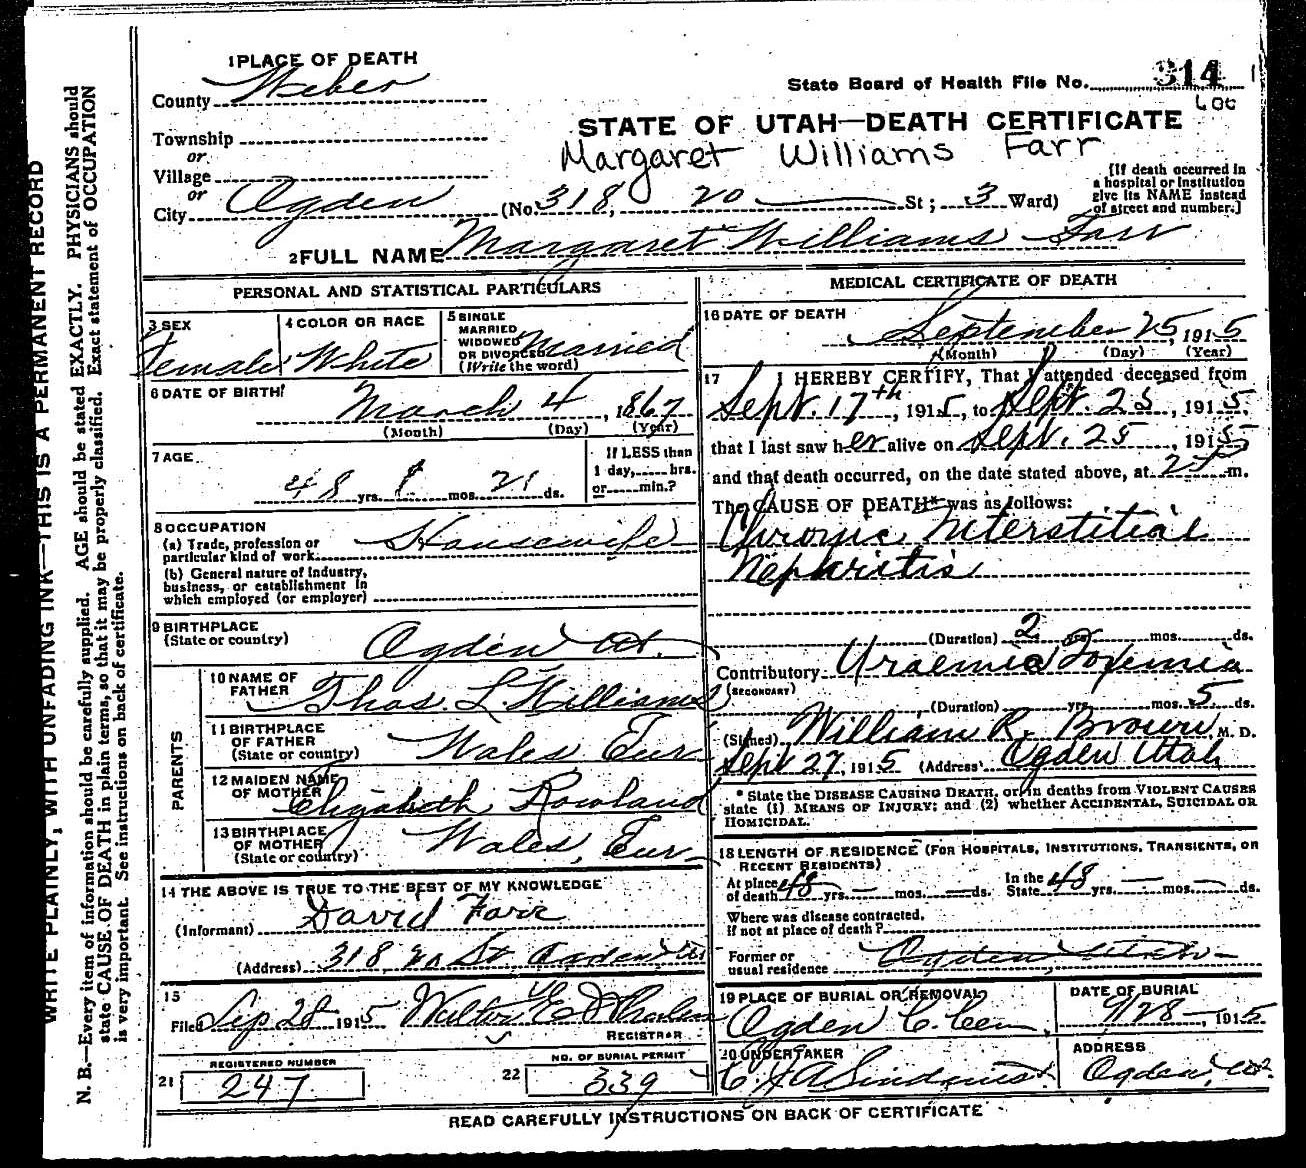 1 PLACE OF DEATH
County Weber
State Board of Health File No. 314
606
Township
or
Village
or
City Ogden (No. 318, 20 St; 3 Ward)
STATE OF UTAH—DEATH CERTIFICATE
Margaret Williams Farr
[If death occurred in
a hospital or institution
give its NAME instead
of street and number.]
2 FULL NAME Margaret Williams Farr
PERSONAL AND STATISTICAL PARTICULARS
3 SEX
Female
4 COLOR OR RACE
White
5 SINGLE
MARRIED
WIDOWED
OR DIVORCED
(Write the word)
Married
6 DATE OF BIRTH
March 4, 1867
(Month) (Day) (Year)
7 AGE
48 yrs. mos. 21 ds.
If LESS than
1 day, hrs.
or min.?
8 OCCUPATION
(a) Trade, profession or
particular kind of work Housewife
(b) General nature of industry,
business, or establishment in
which employed (or employer)
9 BIRTHPLACE
(State or country) Ogden Ut.
PARENTS
10 NAME OF
FATHER Thos. L Williams
11 BIRTHPLACE
OF FATHER
(State or country) Wales Eur
12 MAIDEN NAME
OF MOTHER Elizabeth Rowland
13 BIRTHPLACE
OF MOTHER
(State or country) Wales, Eur
14 THE ABOVE IS TRUE TO THE BEST OF MY KNOWLEDGE
(Informant) David Farr
(Address) 318, 20 St Ogden Ut
15
Filed Sep 28 1915 Walter E Whalen
REGISTRAR
REGISTERED NUMBER
21 247
NO. OF BURIAL PERMIT
22 339
MEDICAL CERTIFICATE OF DEATH
16 DATE OF DEATH
September 25, 1915
(Month) (Day) (Year)
17 I HEREBY CERTIFY, That I attended deceased from
Sept. 17th, 1915, to Sept. 25, 1915
that I last saw her alive on Sept. 25, 1915
and that death occurred, on the date stated above, at m.
The CAUSE OF DEATH* was as follows:
Chronic Interstitial
Nephritis
(Duration) 2 yrs. mos. ds.
Contributory Uraemic Toxemia
(SECONDARY)
(Duration) yrs. mos. 5 ds.
(Signed) William R. Brown, M. D.
Sept 27, 1915 (Address) Ogden Utah
* State the DISEASE CAUSING DEATH, or in deaths from VIOLENT CAUSES
state (1) MEANS OF INJURY; and (2) whether ACCIDENTAL, SUICIDAL OR
HOMICIDAL.
18 LENGTH OF RESIDENCE (FOR HOSPITALS, INSTITUTIONS, TRANSIENTS, OR
RECENT RESIDENTS)
At place
of death 48 yrs. — mos. — ds.
In the
State 48 yrs. — mos. — ds.
Where was disease contracted,
if not at place of death?
Former or
usual residence Ogden Utah
19 PLACE OF BURIAL OR REMOVAL
Ogden C. Cem.
DATE OF BURIAL
9/28 1915
20 UNDERTAKER
ADDRESS
Ogden, Ut.
READ CAREFULLY INSTRUCTIONS ON BACK OF CERTIFICATE
WRITE PLAINLY, WITH UNFADING INK—THIS IS A PERMANENT RECORD
N. B.—Every item of information should be carefully supplied. AGE should be stated EXACTLY. PHYSICIANS should
state CAUSE OF DEATH in plain terms, so that it may be properly classified. Exact statement of OCCUPATION
is very important. See instructions on back of certificate.